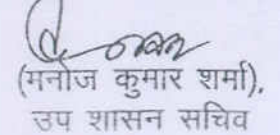 (मनोज कुमार शर्मा),
उप शासन सचिव